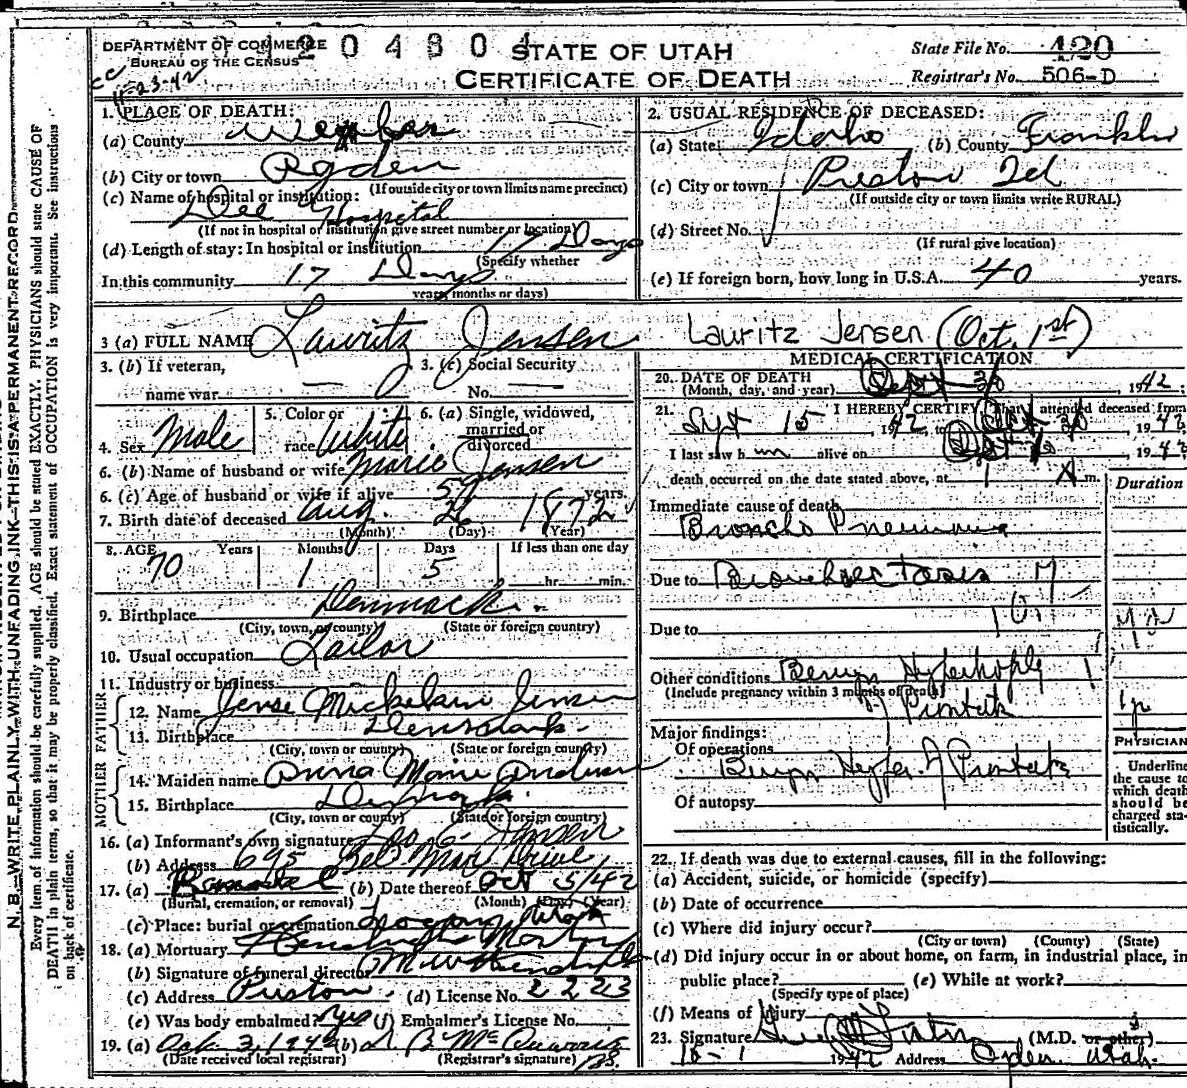 N. B.—WRITE PLAINLY WITH UNFADING INK—THIS IS A PERMANENT RECORD
Every item of information should be carefully supplied. AGE should be stated EXACTLY. PHYSICIANS should state CAUSE OF
DEATH in plain terms, so that it may be properly classified. Exact statement of OCCUPATION is very important. See instructions
on back of certificate.
DEPARTMENT OF COMMERCE
BUREAU OF THE CENSUS
STATE OF UTAH
CERTIFICATE OF DEATH
State File No. 420
Registrar's No. 506-D
1. PLACE OF DEATH:
(a) County Weber
(b) City or town Ogden
(If outside city or town limits name precinct)
(c) Name of hospital or institution:
Dee Hospital
(If not in hospital or institution give street number or location)
(d) Length of stay: In hospital or institution 17 Days
(Specify whether
In this community 17 Days
years, months or days)
2. USUAL RESIDENCE OF DECEASED:
(a) State Idaho (b) County Franklin
(c) City or town Preston Id
(If outside city or town limits write RURAL)
(d) Street No.
(If rural give location)
(e) If foreign born, how long in U.S.A. 40 years.
3 (a) FULL NAME Lauritz Jensen Lauritz Jensen (Oct. 1st)
3. (b) If veteran,
name war
3. (c) Social Security
No.
4. Sex Male
5. Color or
race White
6. (a) Single, widowed,
married or
divorced
6. (b) Name of husband or wife Marie Jensen
6. (c) Age of husband or wife if alive years.
7. Birth date of deceased Aug. 26 1872
(Month) (Day) (Year)
8. AGE Years Months Days If less than one day
70 1 5 hr. min.
9. Birthplace Denmark
(City, town, or county) (State or foreign country)
10. Usual occupation Tailor
11. Industry or business
FATHER
12. Name Jense Mickelsen Jensen
13. Birthplace Denmark
(City, town or county) (State or foreign country)
MOTHER
14. Maiden name Anna Marie
15. Birthplace Denmark
(City, town or county) (State or foreign country)
16. (a) Informant's own signature Leo C. Jensen
(b) Address 695 Bel Mar Drive
17. (a) Removal (b) Date thereof Oct 5/42
(Burial, cremation, or removal) (Month) (Day) (Year)
(c) Place: burial or cremation Logan Utah
18. (a) Mortuary
(b) Signature of funeral director
(c) Address Preston (d) License No.
(e) Was body embalmed? Yes (f) Embalmer's License No.
19. (a) Oct. 3, 1942 (b)
(Date received local registrar) (Registrar's signature)
MEDICAL CERTIFICATION
20. DATE OF DEATH
(Month, day, and year) 1942
21. I HEREBY CERTIFY, That I attended deceased from
Sept 15 1942, to 1942
I last saw him alive on 1942
death occurred on the date stated above, at 1 A m.
Duration
Immediate cause of death
Broncho Pneumonia
Due to Bronchiectasis
Due to
Other conditions Benign Hypertrophy
(Include pregnancy within 3 months of death)
of Prostate
Major findings:
Of operations
Benign Hyper. of Prostate
Of autopsy
PHYSICIAN
Underline
the cause to
which death
should be
charged sta-
tistically.
22. If death was due to external causes, fill in the following:
(a) Accident, suicide, or homicide (specify)
(b) Date of occurrence
(c) Where did injury occur?
(City or town) (County) (State)
(d) Did injury occur in or about home, on farm, in industrial place, in
public place? (e) While at work?
(Specify type of place)
(f) Means of Injury
23. Signature (M.D. or other)
10-1 1942 Address Ogden Utah